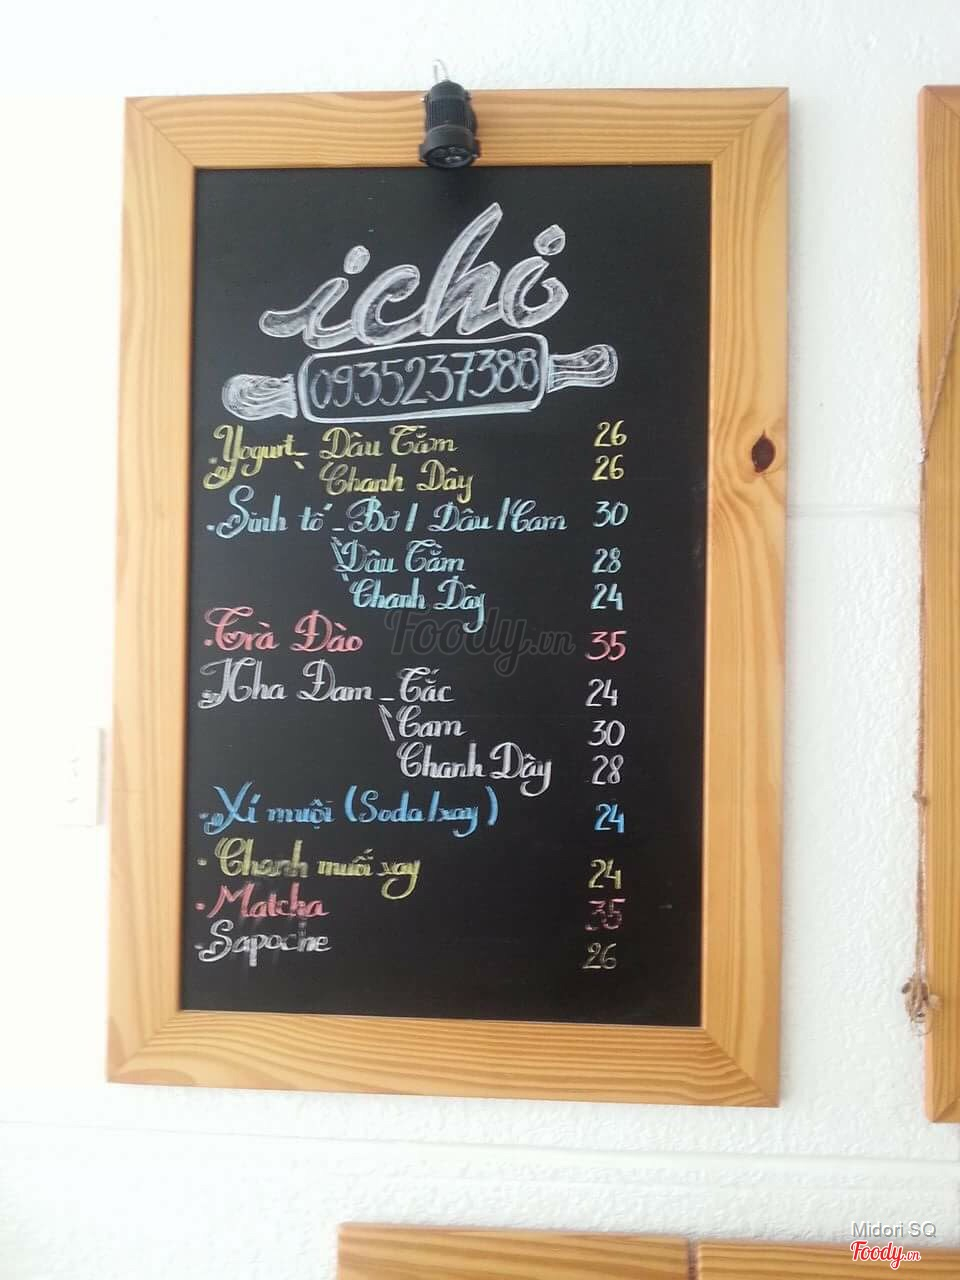 ichi
0935237388
Yogurt - Dâu Tằm 26
Chanh Dây 26
- Sinh tố - Bơ / Dâu / Cam 30
Dâu Tằm 28
Chanh Dây 24
- Trà Đào 35
- Nha Đam - Tắc 24
Cam 30
Chanh Dây 28
- Xí muội (Soda/xay) 24
- Chanh muối xay 24
- Matcha 35
- Sapoche 26
Foody.vn
Midori SQ
Foody.vn